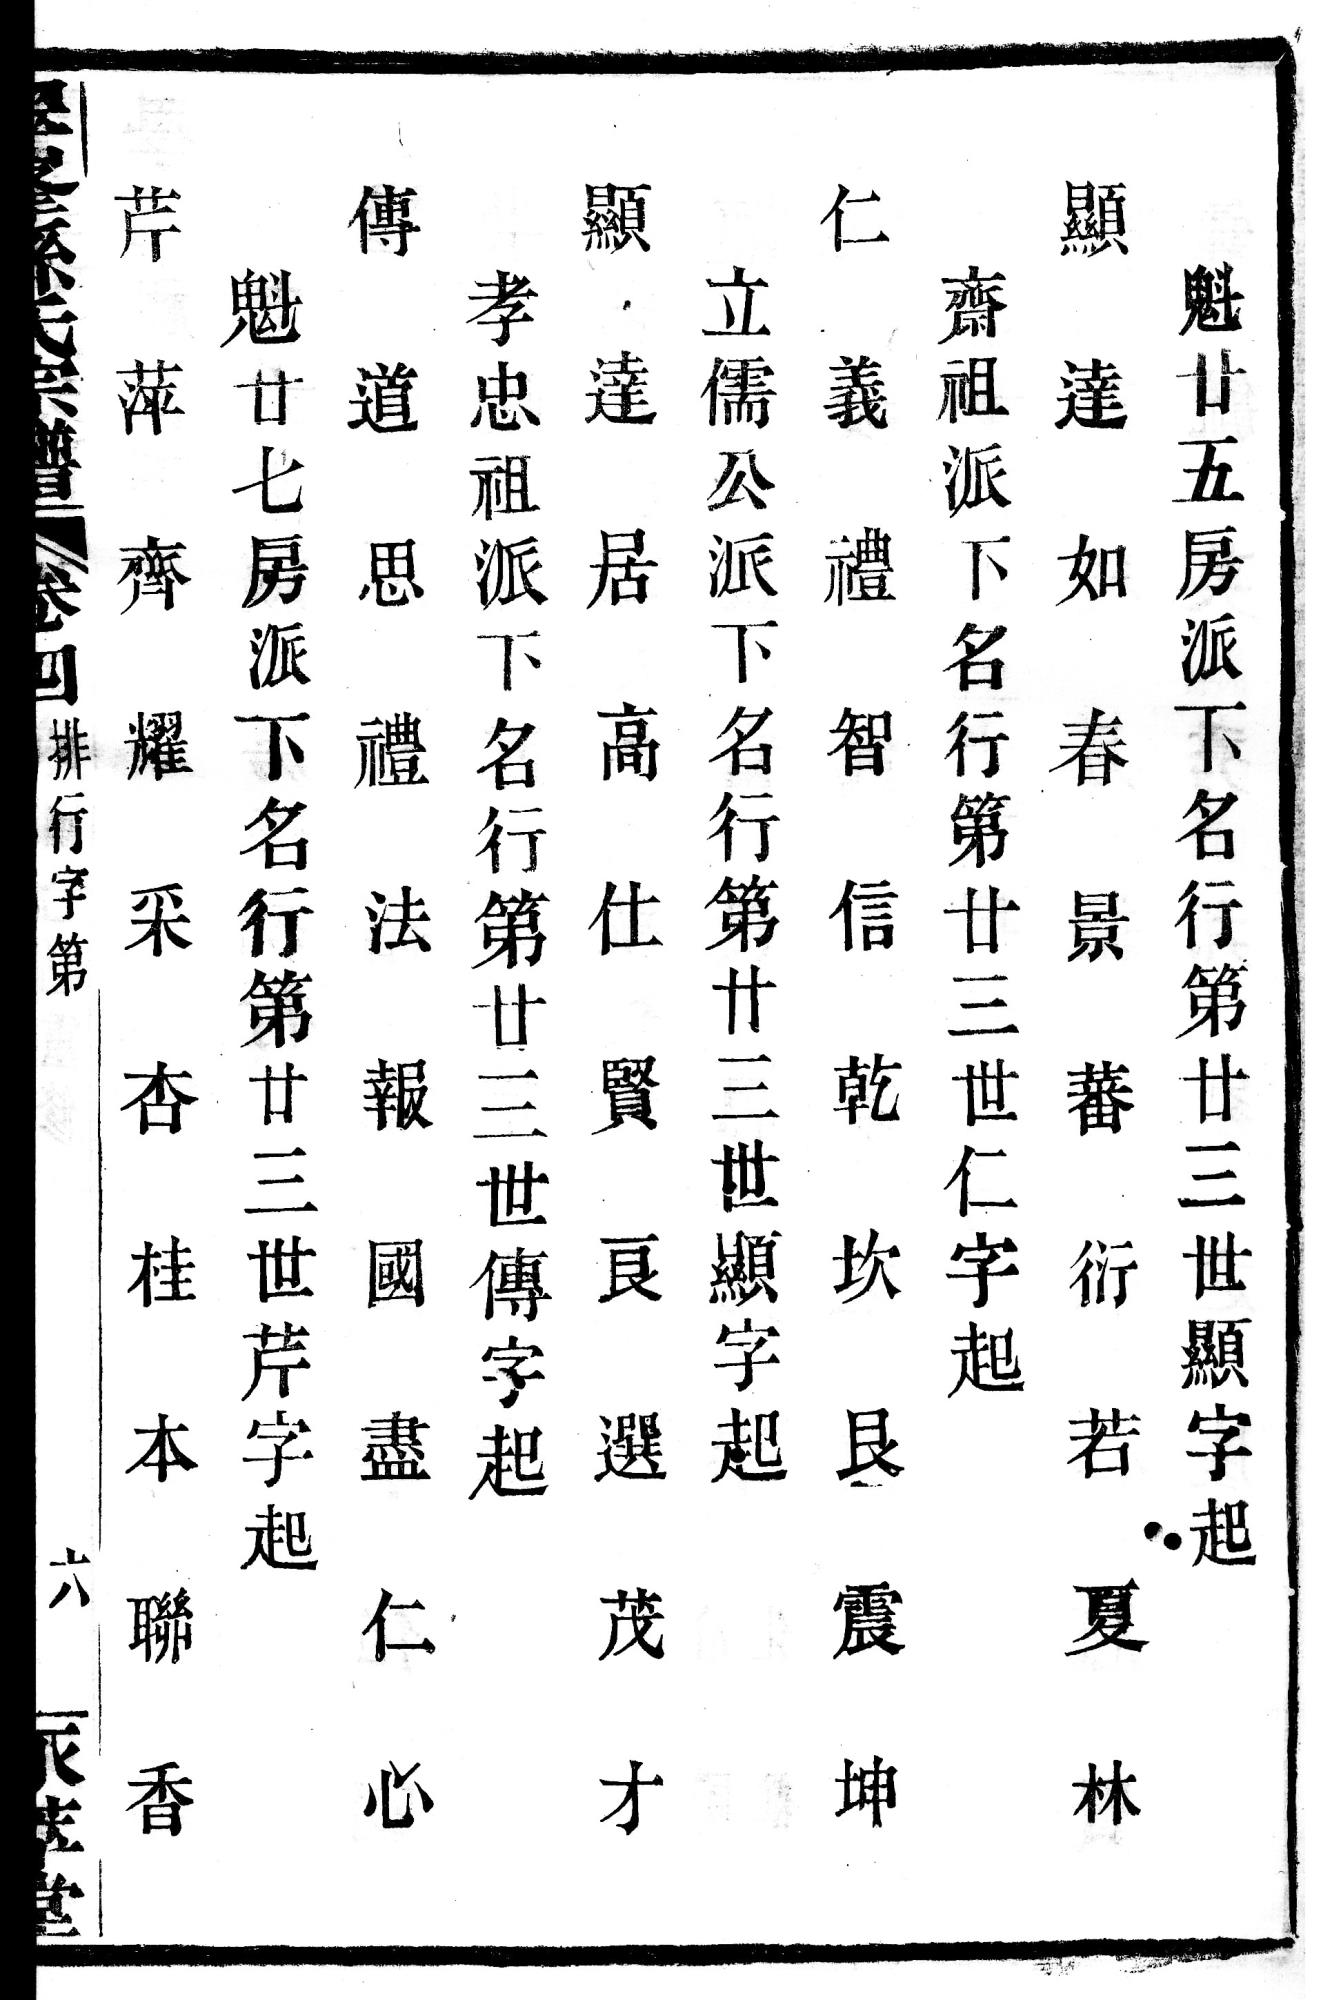 魁廿五房派下名行第廿三世顯字起
顯達如春景蕃衍若夏林
齋祖派下名行第廿三世仁字起
仁義禮智信乾坎艮震坤
立儒公派下名行第廿三世顯字起
顯達居高仕賢良選茂才
孝忠祖派下名行第廿三世傳字起
傳道思禮法報國盡仁心
魁廿七房派下名行第廿三世芹字起
芹萍齊耀采杏桂本聯香
孫氏宗譜 卷四 排行字第 六 堂